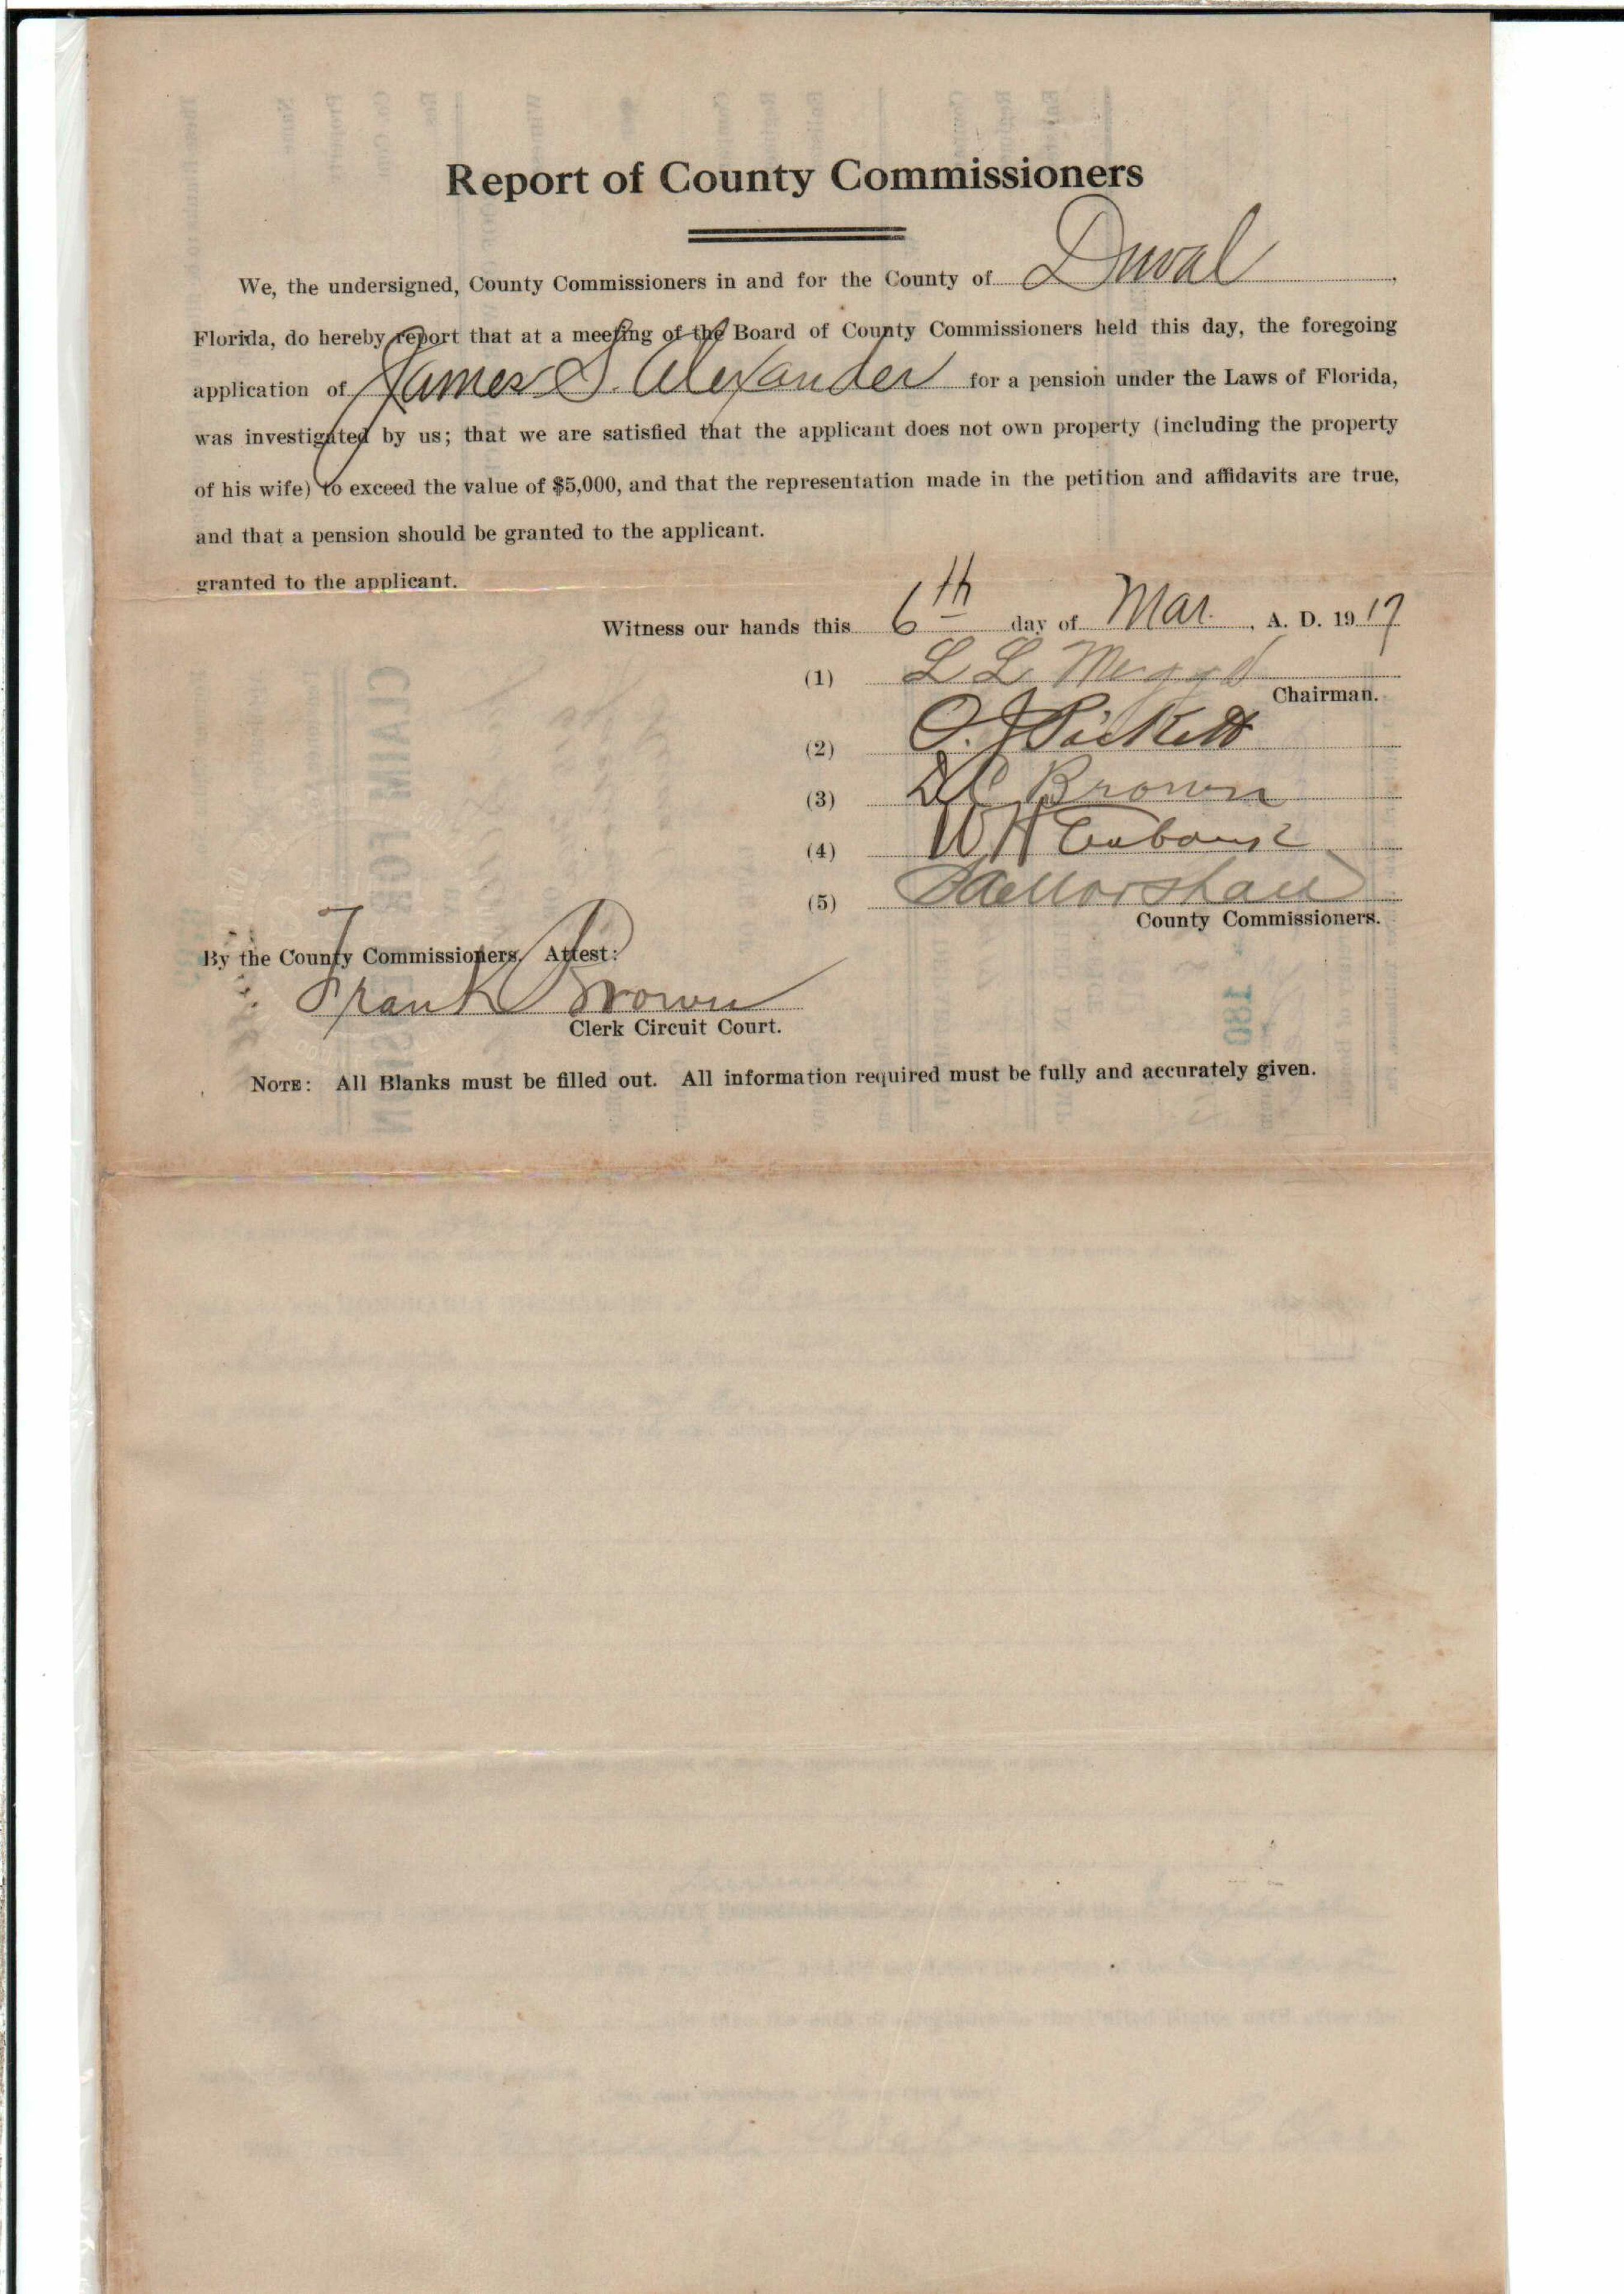 Report of County Commissioners
We, the undersigned, County Commissioners in and for the County of Duval,
Florida, do hereby report that at a meeting of the Board of County Commissioners held this day, the foregoing
application of James S. Alexander for a pension under the Laws of Florida,
was investigated by us; that we are satisfied that the applicant does not own property (including the property
of his wife) to exceed the value of $5,000, and that the representation made in the petition and affidavits are true,
and that a pension should be granted to the applicant.
granted to the applicant.
Witness our hands this 6th day of Mar. , A. D. 1917
(1) L L Meggs
Chairman.
(2) O. J. Pickett
(3) Brown
(4) W H
(5)
County Commissioners.
By the County Commissioners, Attest:
Frank Brown
Clerk Circuit Court.
NOTE: All Blanks must be filled out. All information required must be fully and accurately given.